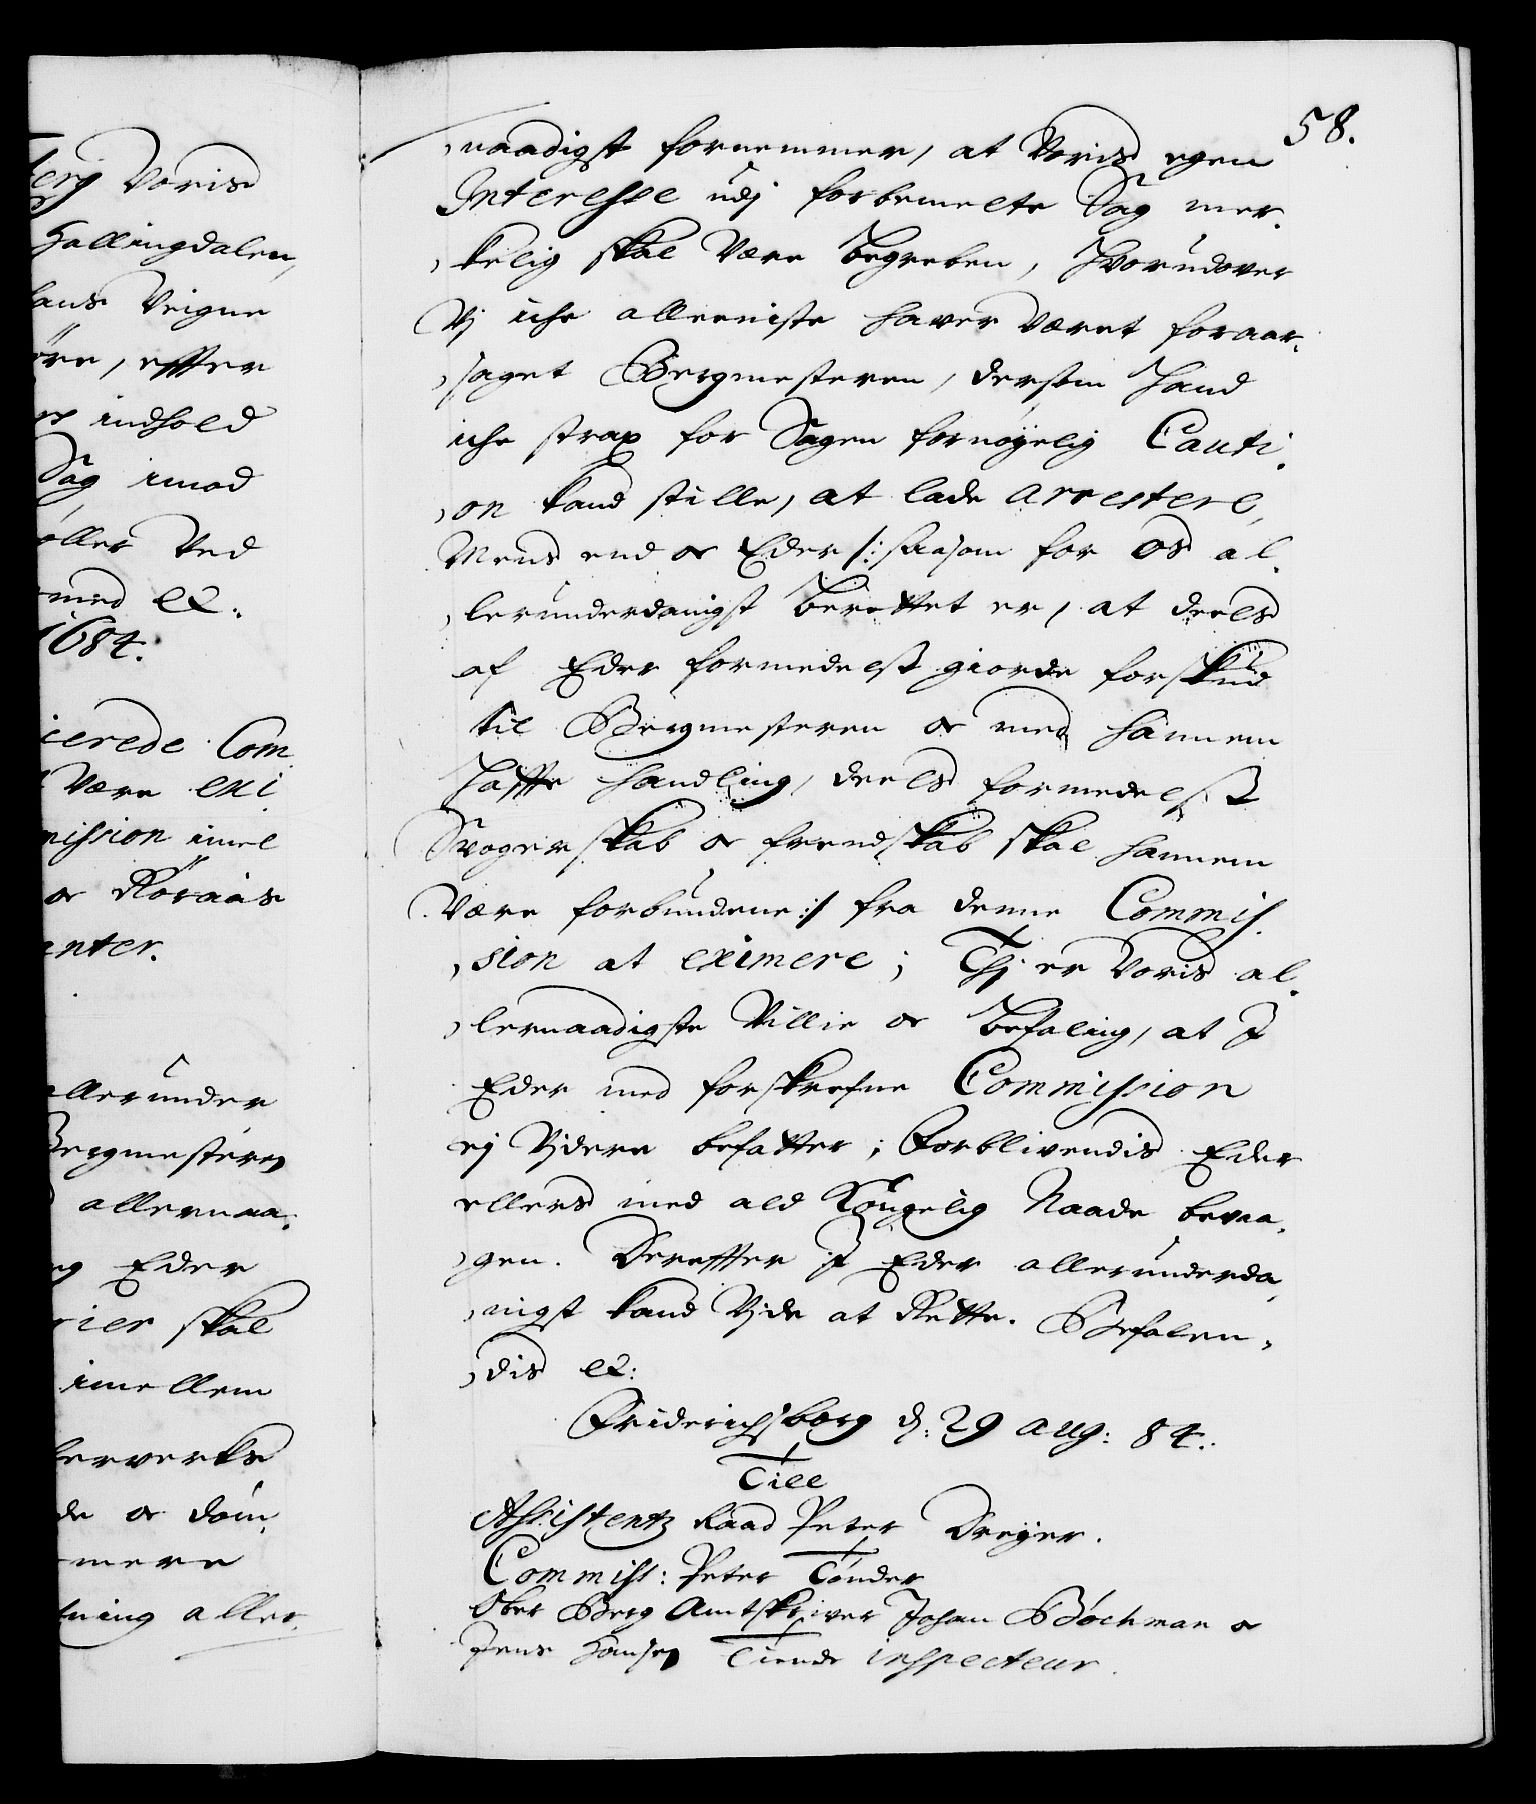 58.
naadigst fornemmer, at Voris egen
Interesse udj forbemelte Sag mer-
kelig skal være begreben, hvorudover
Vj iche alleeniste haver været foraar-
saget Bergmesteren, dersom hand
iche strax for Sagen fornøyelig Cauti-
on kand stille, at lade arrestere,
Mens end oc Eder /: saasom for os al-
lerunderdanigst berettet er, at deels
af Eder formedelst giorde forskud
til Bergmesteren oc med hannem
haffte handling, deels formedelst
Svogerskab oc frendskab skal hannem
være forbundene :/ fra denne Commis-
sion at eximere; Thj er Voris al-
lernaadigste Villie oc befaling, at I
Eder med forskrefne Commission
ej Vjdere befatter; Forblivendis Eder
ellers med ald Kongelig Naade bevaa-
gen. Derefter I Eder allerunderda-
nigst kand Vjde at Rette. Befalen-
dis etc:
Friderichsborg d: 29 aug: 84.
Till
Assistentz Raad Peter Dreyer.
Commiss: Peter Tønder
Ober Berg Amtskriver Johan Bøchman oc
Jens Hansen Tiende inspecteur.
erg Voris
Hallingdalen,
hans Veigne
øre, effter
indhold
Sag imod
øller Ved
med etc:
1684.
ierede Com
være exi
mission imel
oc Røraas
anter.
allerunder
Bergmesteren
allernaa-
Eder
rier skal
imellem
berverks
de oc döm-
mere
ning aller-